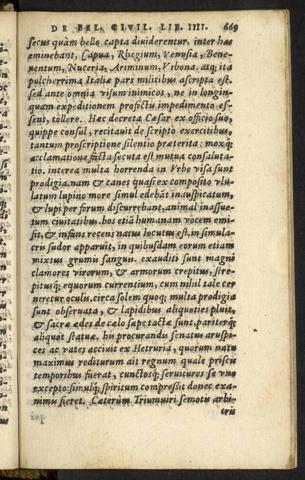 DE BEL. CIVIL. LIB. IIII. 669
secus quàm bello capta diuiderentur. inter has
eminebant, Capua, Rhegium, Venusia, Bene-
uentum, Nuceria, Ariminum, Vibona. atq; ita
pulcherrima Italiæ pars militibus ascripta est.
sed ante omnia visum inimicos, ne in longin-
quam expeditionem profectu impedimento es-
sent, tollere. Hæc decreta Cæsar ex officio suo,
quippe consul, recitauit de scripto exercitibus,
tantum proscriptione silentio præterita: moxq;
acclamatione fucta secuta est mutua consaluta-
tio. interea multa horrenda in Vrbe visa sunt
prodigia. nam & canes quasi ex composito vlu-
latum lupino more simul edebāt inauspicatum,
& lupi per forum discurrebant, animal inassue-
tum ciuitatibus. bos etiā humanam vocem emi-
sit, & infans recens natus locutus est. in simula-
cris sudor apparuit, in quibusdam eorum etiam
mixtus grumis sanguin. exauditi sunt magni
clamores virorum, & armorum crepitus, stre-
pitusq; equorum currentium, cum nihil tale cer
neretur oculis. circa solem quoq; multa prodigia
sunt obseruata, & lapidibus aliquoties pluit,
& sacræ ædes de cælo sæpe tactæ sunt, pariterq;
aliquot statuæ. his procurandis senatus aruspi-
ces ac vates acciuit ex Hetruria, quorum natu
maximus rediturum ait regnum quale priscis
temporibus fuerat, cunctosq; seruituros se vno
excepto: simulq; spiritum compressit donec exa-
nimis fieret. Cæterùm Triumuiri semotis arbi-
tris